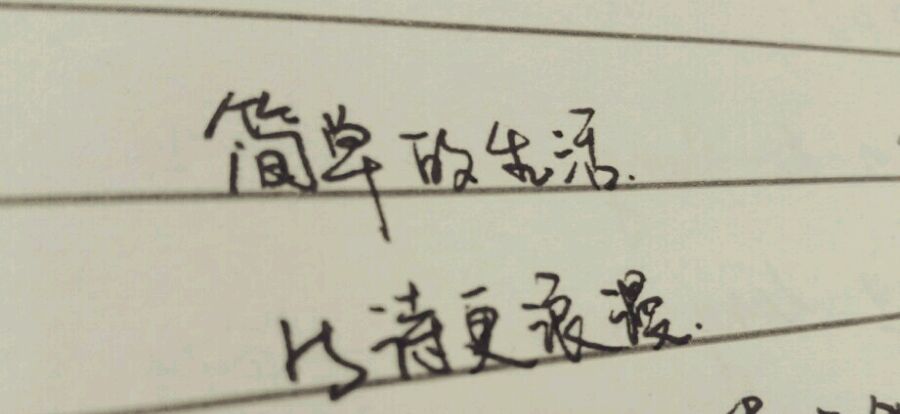 简单的生活.
比诗更浪漫.